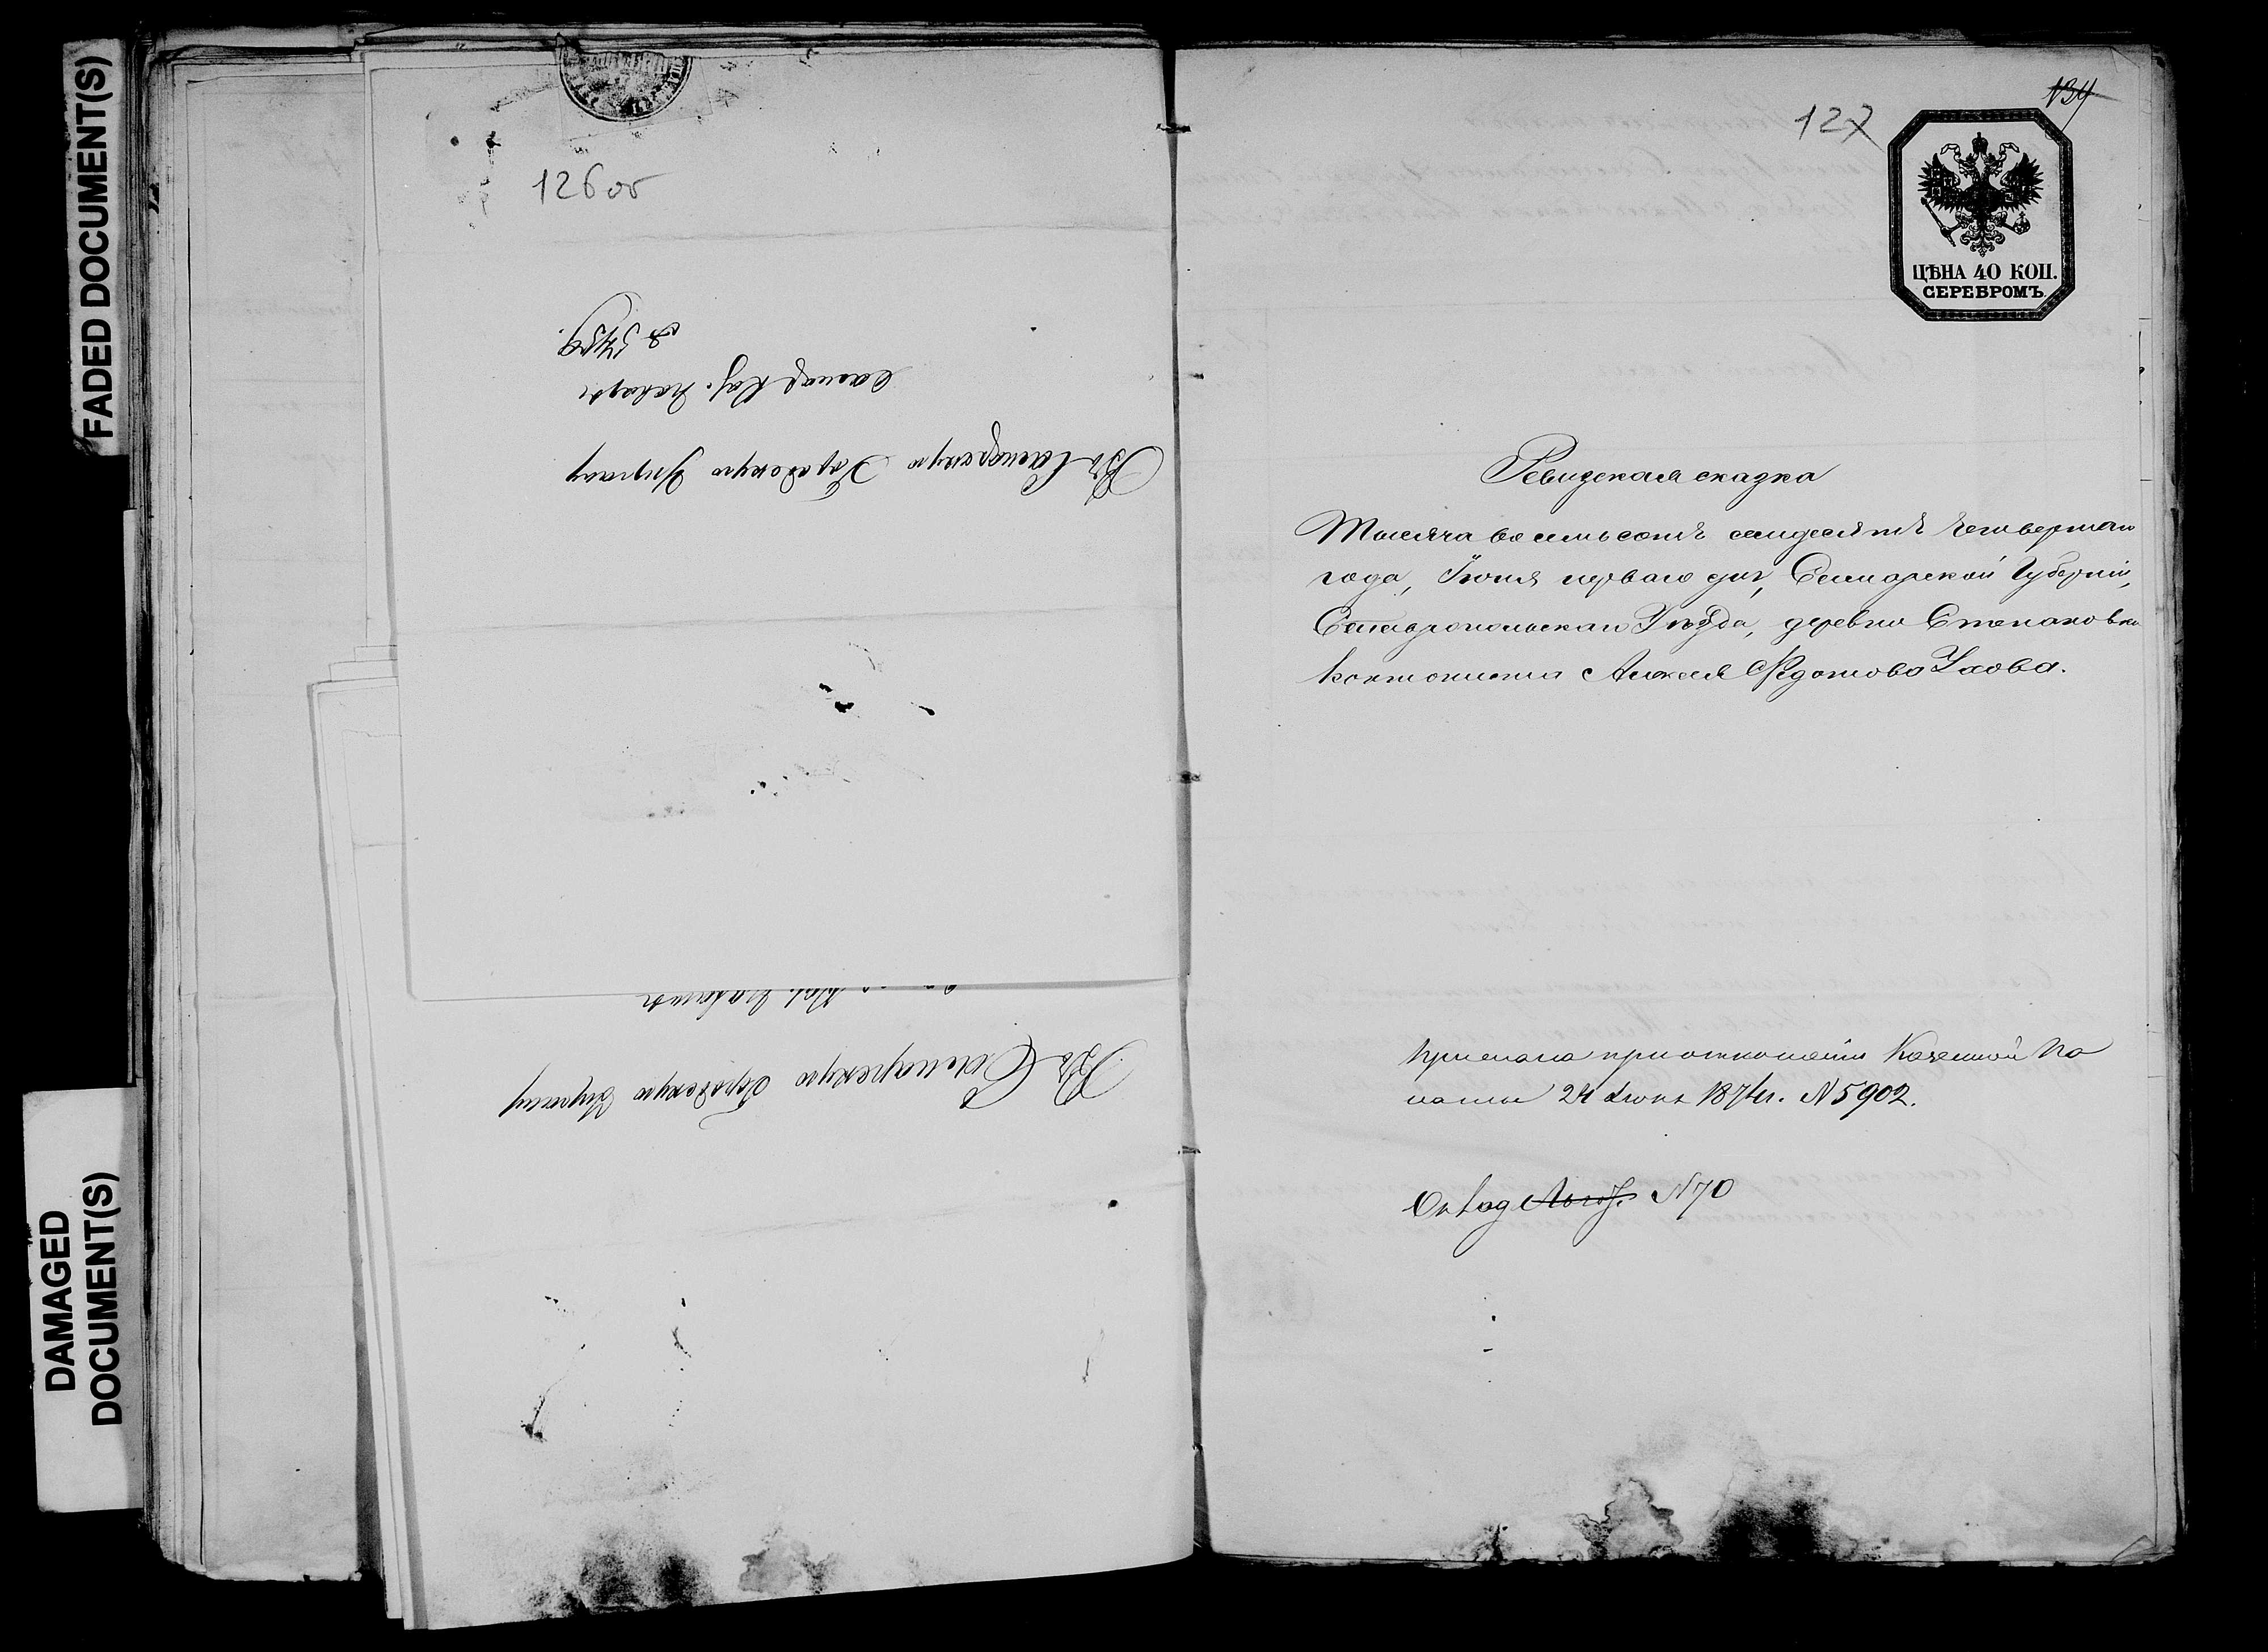 FADED DOCUMENT(S)
DAMAGED
DOCUMENT(S)
126 об
Въ Самарскую Городскую Управу
Самар. Каз. Палаты
№ 5759.
Въ Самарскую Городскую Управу
127
134
ЦѢНА 40 КОП.
СЕРЕБРОМЪ.
Ревизская сказка
Тысяча восемьсотъ семдесятъ четвертаго
года, Іюня перваго дня, Самарской Губерніи,
Ставропольскаго Уѣзда, деревни Степановки
кантониста Алексея Федотова Ухова.
Прислана при отношеніи Казенной Па
латы 24 Іюня 1874 г. № 5902.
Оклад № 70